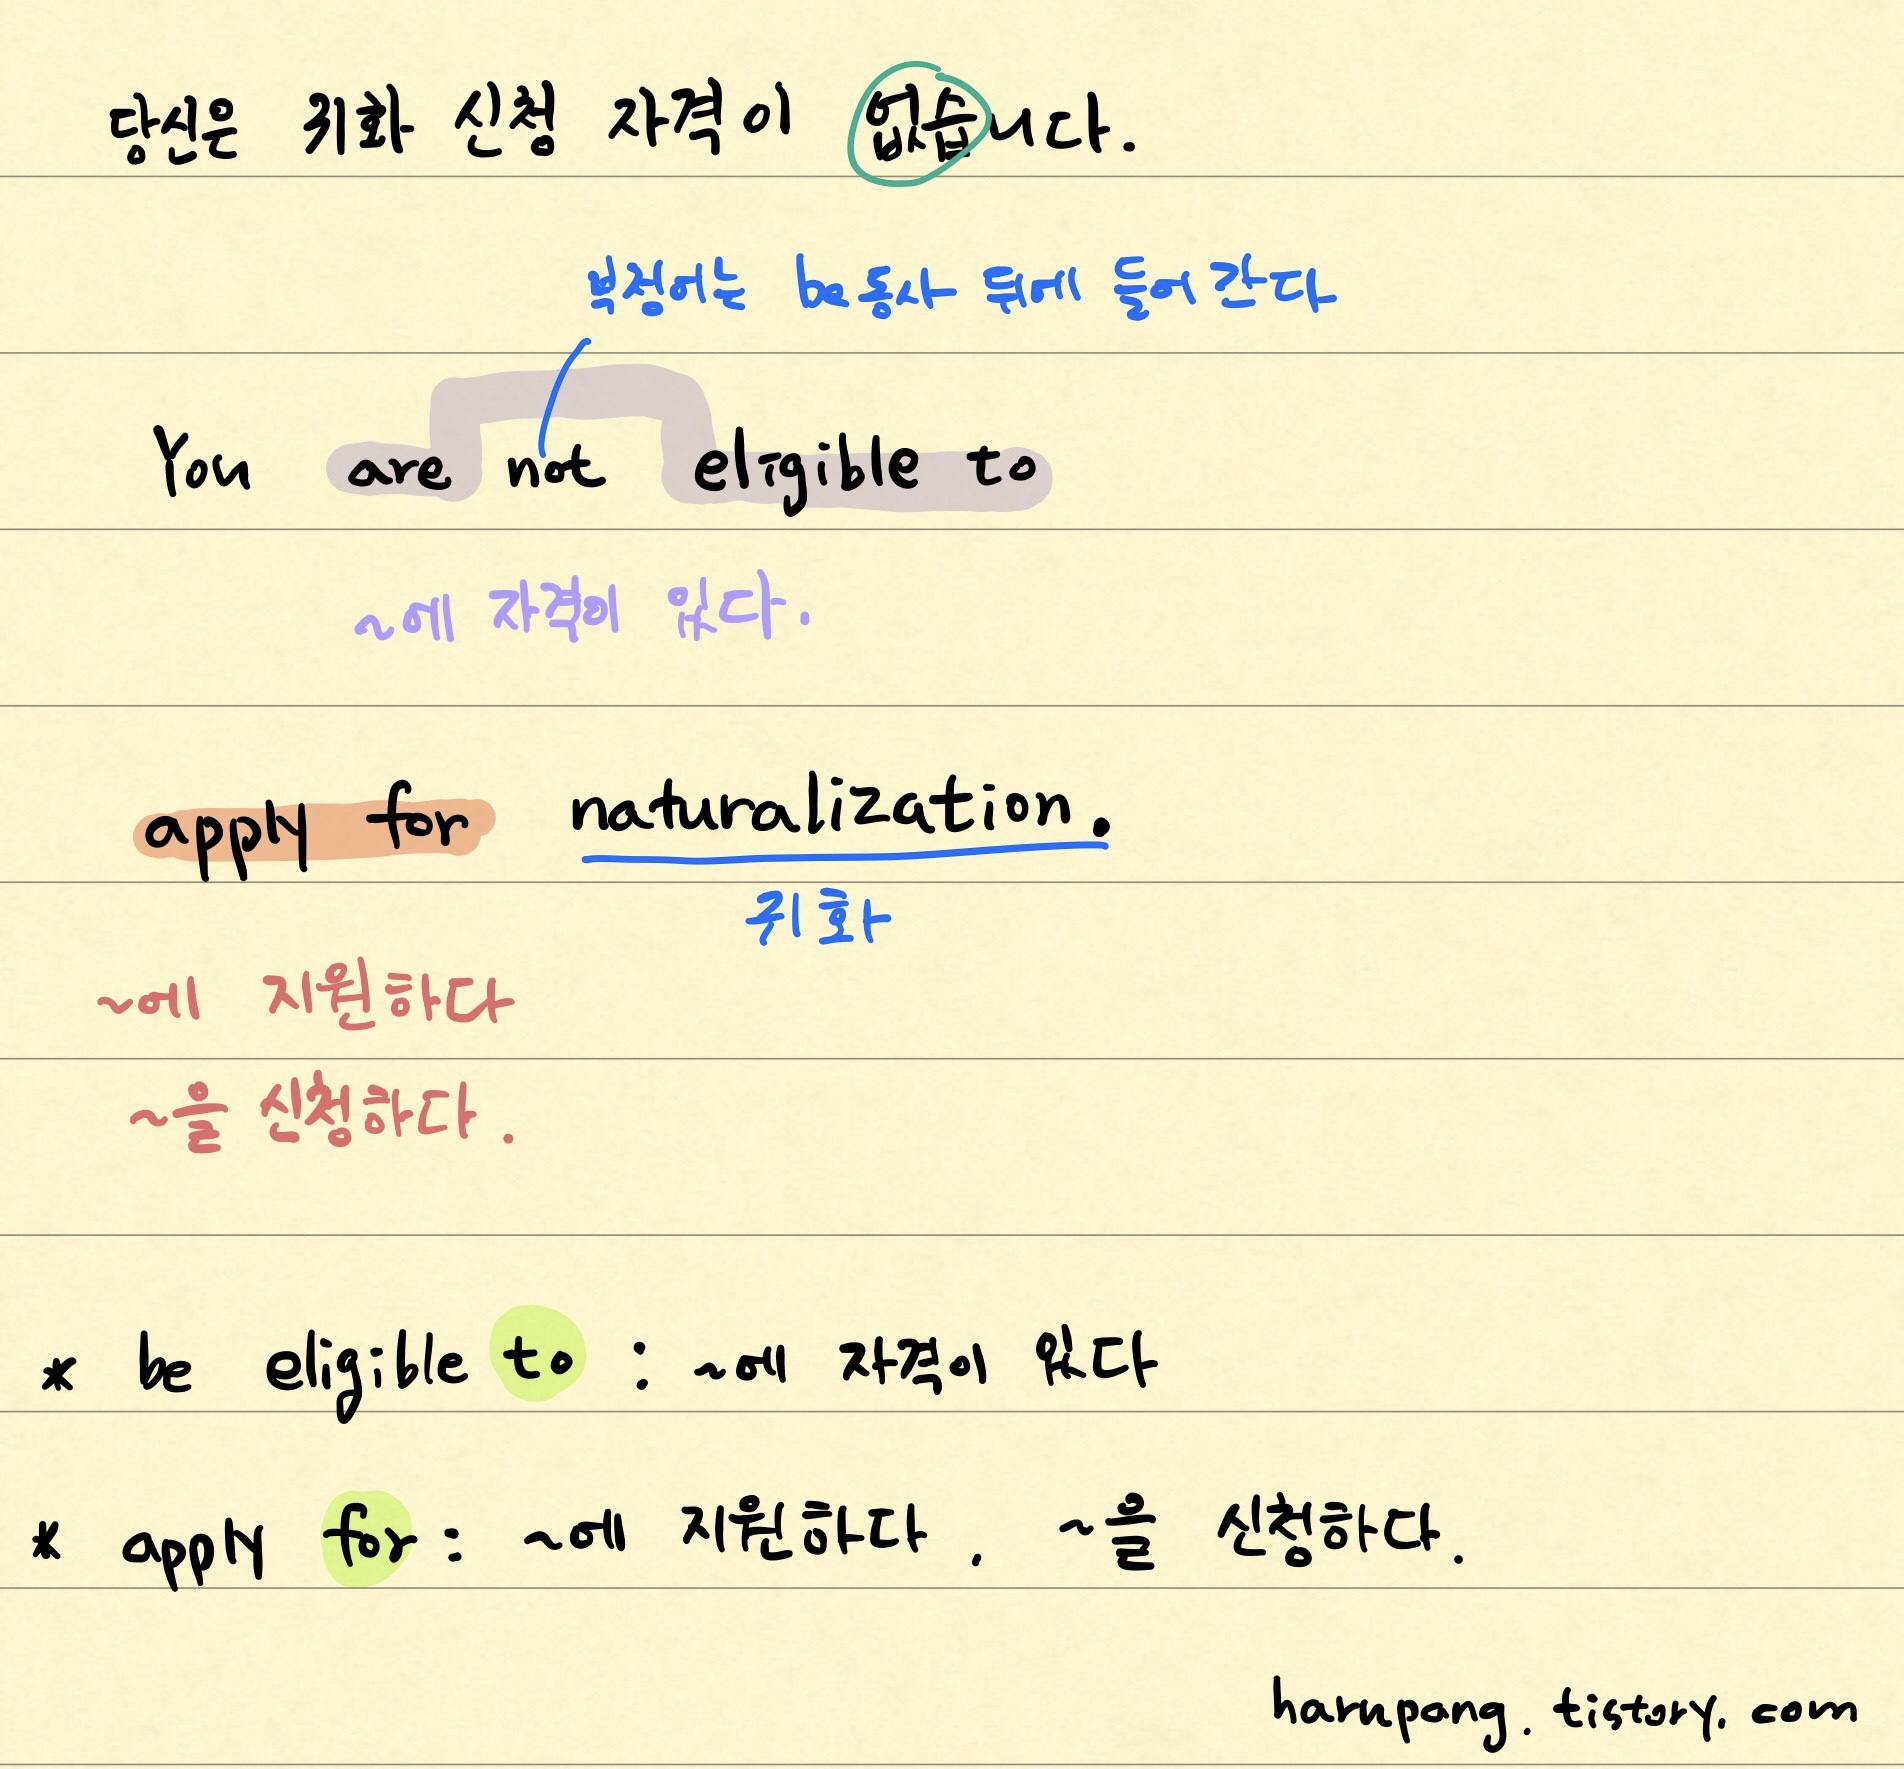 당신은 귀화 신청 자격이 없습니다.
부정어는 be동사 뒤에 들어간다
You are not eligible to
~에 자격이 있다.
apply for naturalization.
귀화
~에 지원하다
~을 신청하다.
* be eligible to : ~에 자격이 있다
* apply for : ~에 지원하다, ~을 신청하다.
harupang.tistory.com